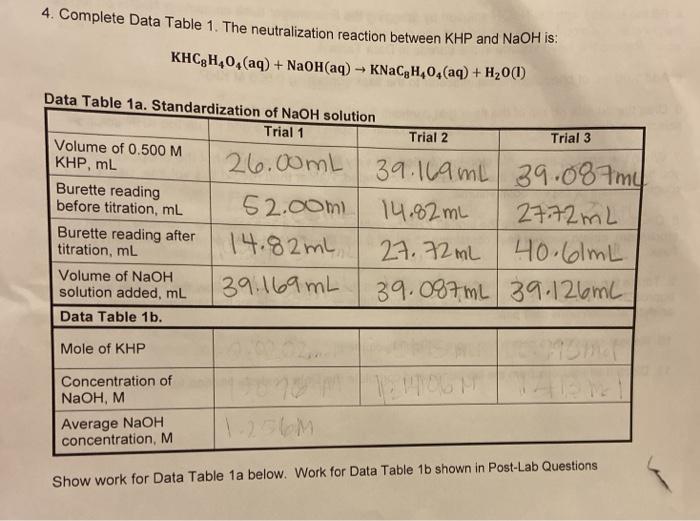 4. Complete Data Table 1. The neutralization reaction between KHP and NaOH is:
KHC₈H₄O₄(aq) + NaOH(aq) → KNaC₈H₄O₄(aq) + H₂O(l)
Data Table 1a. Standardization of NaOH solution
Trial 1 Trial 2 Trial 3
Volume of 0.500 M
KHP, mL 26.00mL 39.169mL 39.087mL
Burette reading
before titration, mL 52.00ml 14.82mL 27.72mL
Burette reading after
titration, mL 14.82mL 27.72mL 40.61mL
Volume of NaOH
solution added, mL 39.169mL 39.087mL 39.126mL
Data Table 1b.
Mole of KHP
Concentration of
NaOH, M
Average NaOH
concentration, M 1.256M
Show work for Data Table 1a below. Work for Data Table 1b shown in Post-Lab Questions